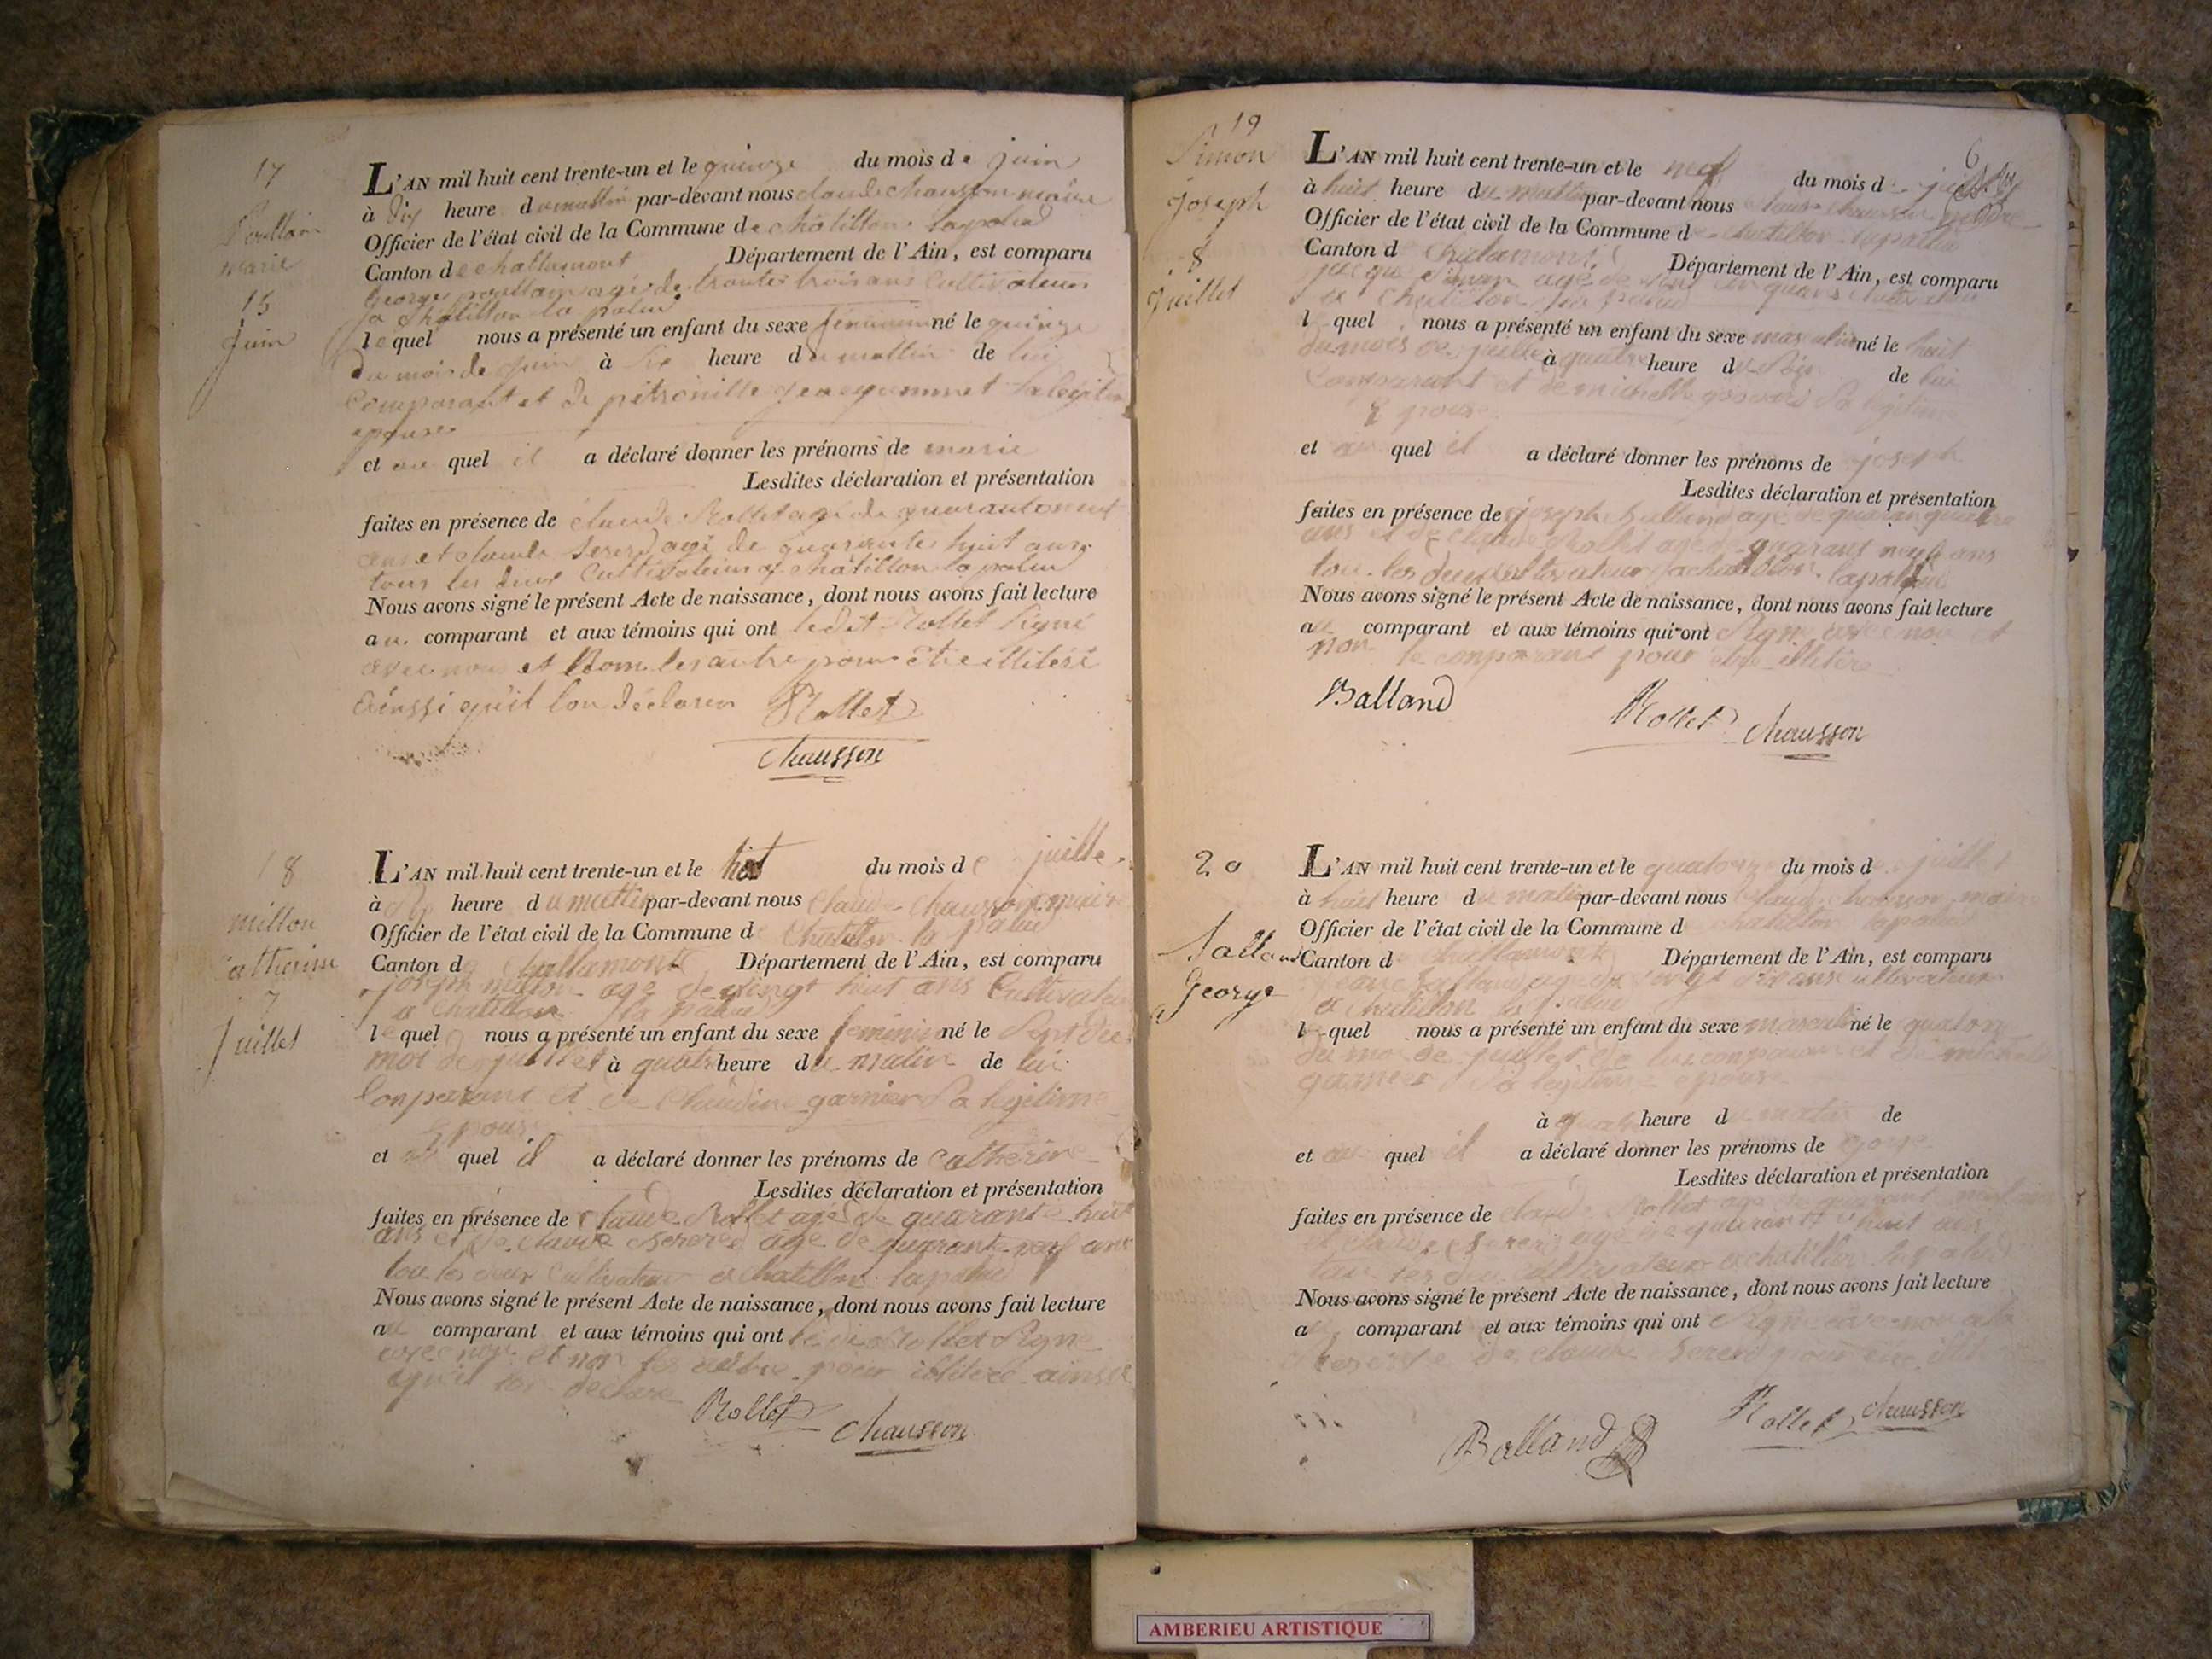 17
Poullain
marie
15
Juin
L'AN mil huit cent trente-un et le quinze du mois de juin
à dix heure du mattin par-devant nous claude chausson maire
Officier de l'état civil de la Commune de châtillon lapalud
Canton de challamont Département de l'Ain, est comparu
George poullain agé de trante trois ans Cultivateur
a châtillon la palud
le quel nous a présenté un enfant du sexe féminin né le quinze
du mois de juin à six heure du mattin de lui
Comparant et de pétronille sa légitime
epouse
et au quel il a déclaré donner les prénoms de marie
Lesdites déclaration et présentation
faites en présence de claude Rollet agé de quarante neuf
ans et claude Sererd agé de quarante huit ans
tous les deux Cultivateurs a châtillon la palud
Nous avons signé le présent Acte de naissance, dont nous avons fait lecture
au comparant et aux témoins qui ont ledit Rollet signé
avec nous et non les autre pour être illitéré
ainssi qu'il lon déclaren Rollet
Chausson
18
millon
Catherine
7
Juillet
L'AN mil huit cent trente-un et le huit du mois de juillet
à heure du mattin par-devant nous Claude Chausson maire
Officier de l'état civil de la Commune de Chatillon la palud
Canton de Challamont Département de l'Ain, est comparu
joseph millon agé de vingt huit ans Cultivateur
a Chatillon la palud
le quel nous a présenté un enfant du sexe féminin né le Sept du
moi de juillet à quatre heure du matin de lui
Conparant et de Claudine garnier Sa legitime
epouse
et au quel il a déclaré donner les prénoms de Catherine
Lesdites déclaration et présentation
faites en présence de Claude Rollet agé de quarante huit
ans et de Claude Sererd agé de quarante neuf ans
tou les deux Cultivateur a Chatillon lapalud
Nous avons signé le présent Acte de naissance, dont nous avons fait lecture
au comparant et aux témoins qui ont ledit Rollet Signé
avec nou et non les autre pour illiteré ainssi
qu'il lon declare
Rollet Chausson
19
Simon
joseph
8
juillet
6
L'AN mil huit cent trente-un et le neuf du mois de juillet
à huit heure du mattin par-devant nous Claude Chausson maire
Officier de l'état civil de la Commune de Chatillon lapallu
Canton de Chalamont Département de l'Ain, est comparu
Simon agé de
a Chatillon la palud
le quel nous a présenté un enfant du sexe masculin né le huit
du mois de juillet à quatre heure du Soir de lui
Comparant et de michelle Sa legitime
Epouse
et au quel il a déclaré donner les prénoms de joseph
Lesdites déclaration et présentation
faites en présence de joseph balland agé de
ans et de Claude Rollet agé de quarant neuf ans
tou les deux Cultivateur a chatillon lapalud
Nous avons signé le présent Acte de naissance, dont nous avons fait lecture
au comparant et aux témoins qui ont Signé avec nou et
non le comparant pour être illitere
Balland Rollet Chausson
20
George
L'AN mil huit cent trente-un et le quatorze du mois de juillet
à huit heure du matin par-devant nous Claude Chausson maire
Officier de l'état civil de la Commune de chatillon lapalud
Canton de Challamont Département de l'Ain, est comparu
ans cultivateur
a Chatillon la palud
le quel nous a présenté un enfant du sexe masculin né le quatorze
du moi de juillet de lui comparant et de
garnier Sa legitime epouse
à heure du matin de
et au quel il a déclaré donner les prénoms de
Lesdites déclaration et présentation
faites en présence de claude Rollet agé de quarant neuf
et claude Sererd agé de quarante huit ans
tou les deux cultivateur a chatillon la palud
Nous avons signé le présent Acte de naissance, dont nous avons fait lecture
au comparant et aux témoins qui ont Signé avec nou
de claude Sererd pour etre
Balland Rollet Chausson
AMBERIEU ARTISTIQUE